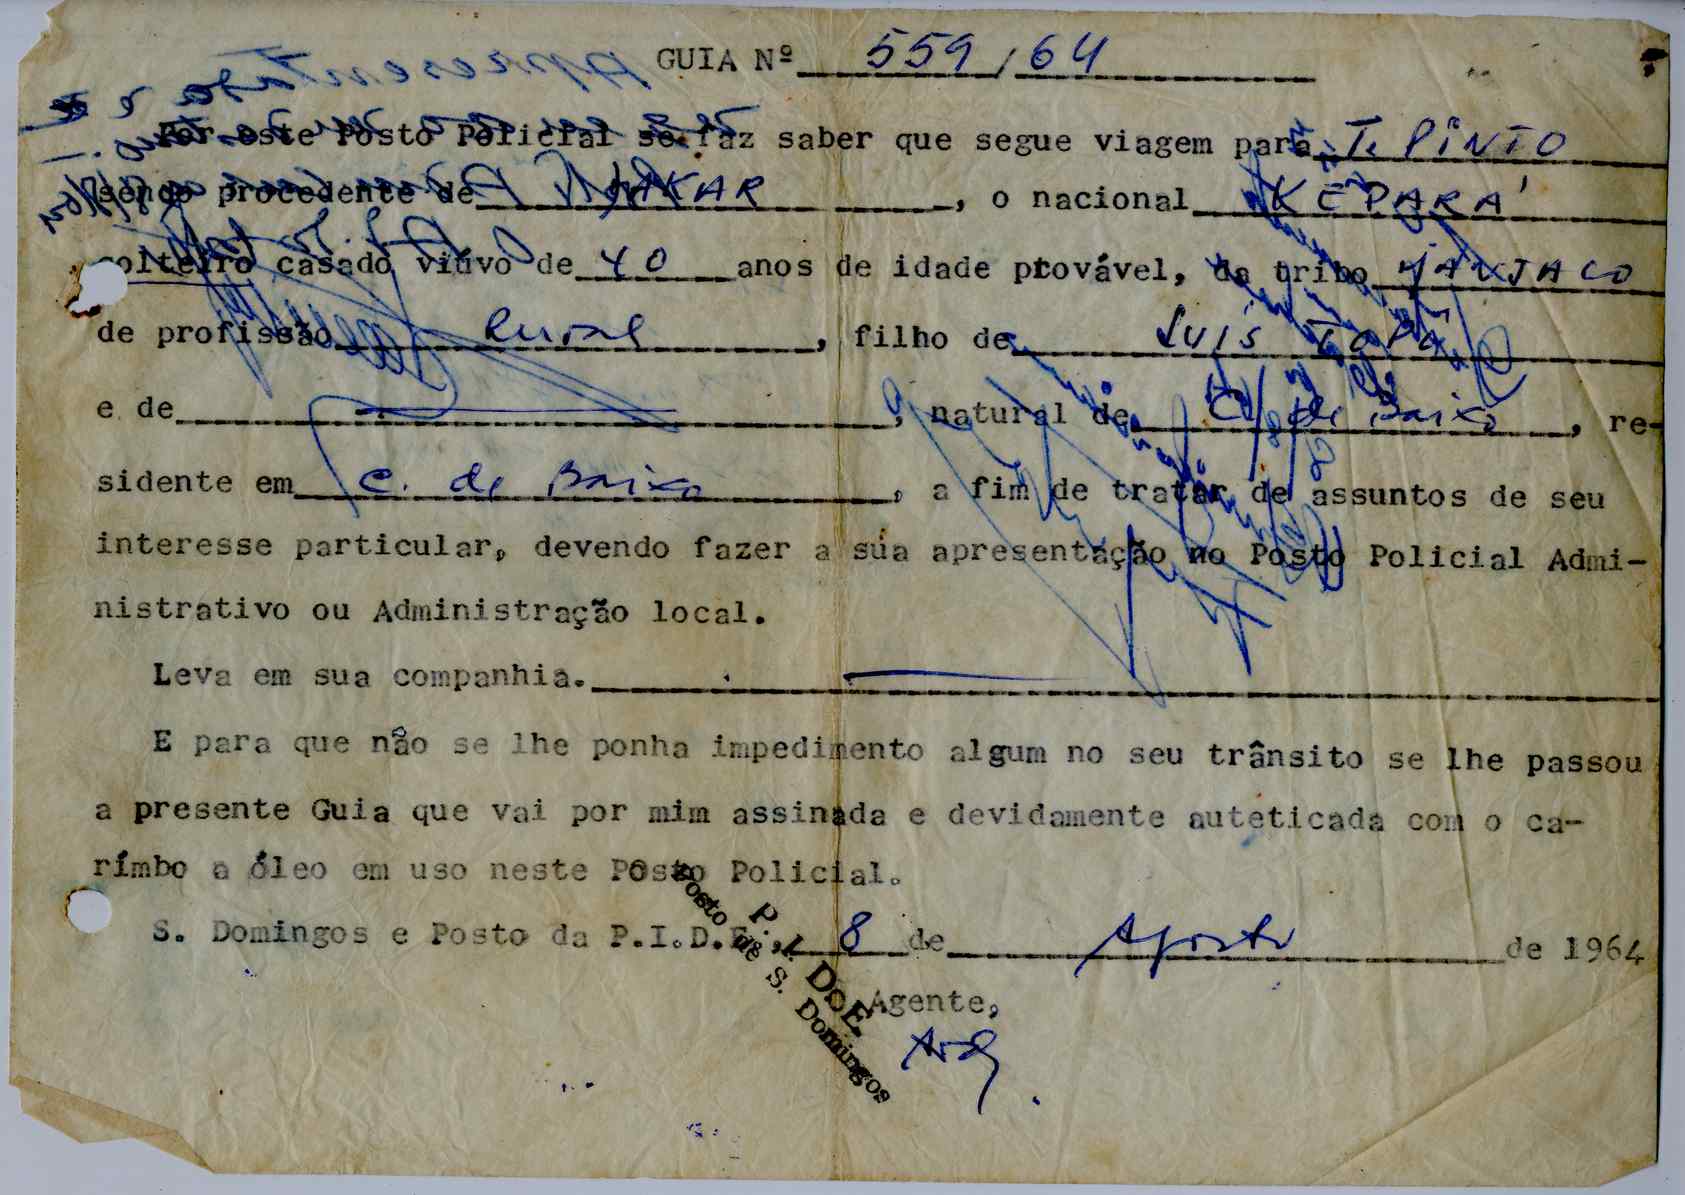 GUIA Nº 559/64
Por este Posto Policial se faz saber que segue viagem para T. PINTO
sendo procedente de DAKAR, o nacional KEPARÁ
solteiro casado viúvo de 40 anos de idade provável, da tribo MANJACO
de profissão Rural, filho de LUIS
e de, natural de C. de Baixo, re-
sidente em C. de Baixo, a fim de tratar de assuntos de seu
interesse particular, devendo fazer a sua apresentação no Posto Policial Admi-
nistrativo ou Administração local.
Leva em sua companhia.
E para que não se lhe ponha impedimento algum no seu trânsito se lhe passou
a presente Guia que vai por mim assinada e devidamente auteticada com o ca-
rímbo a óleo em uso neste Pôsto Policial.
S. Domingos e Posto da P.I.D.E., 8 de Agosto de 1964
P. I. D. E.
Posto de S. Domingos
O Agente,